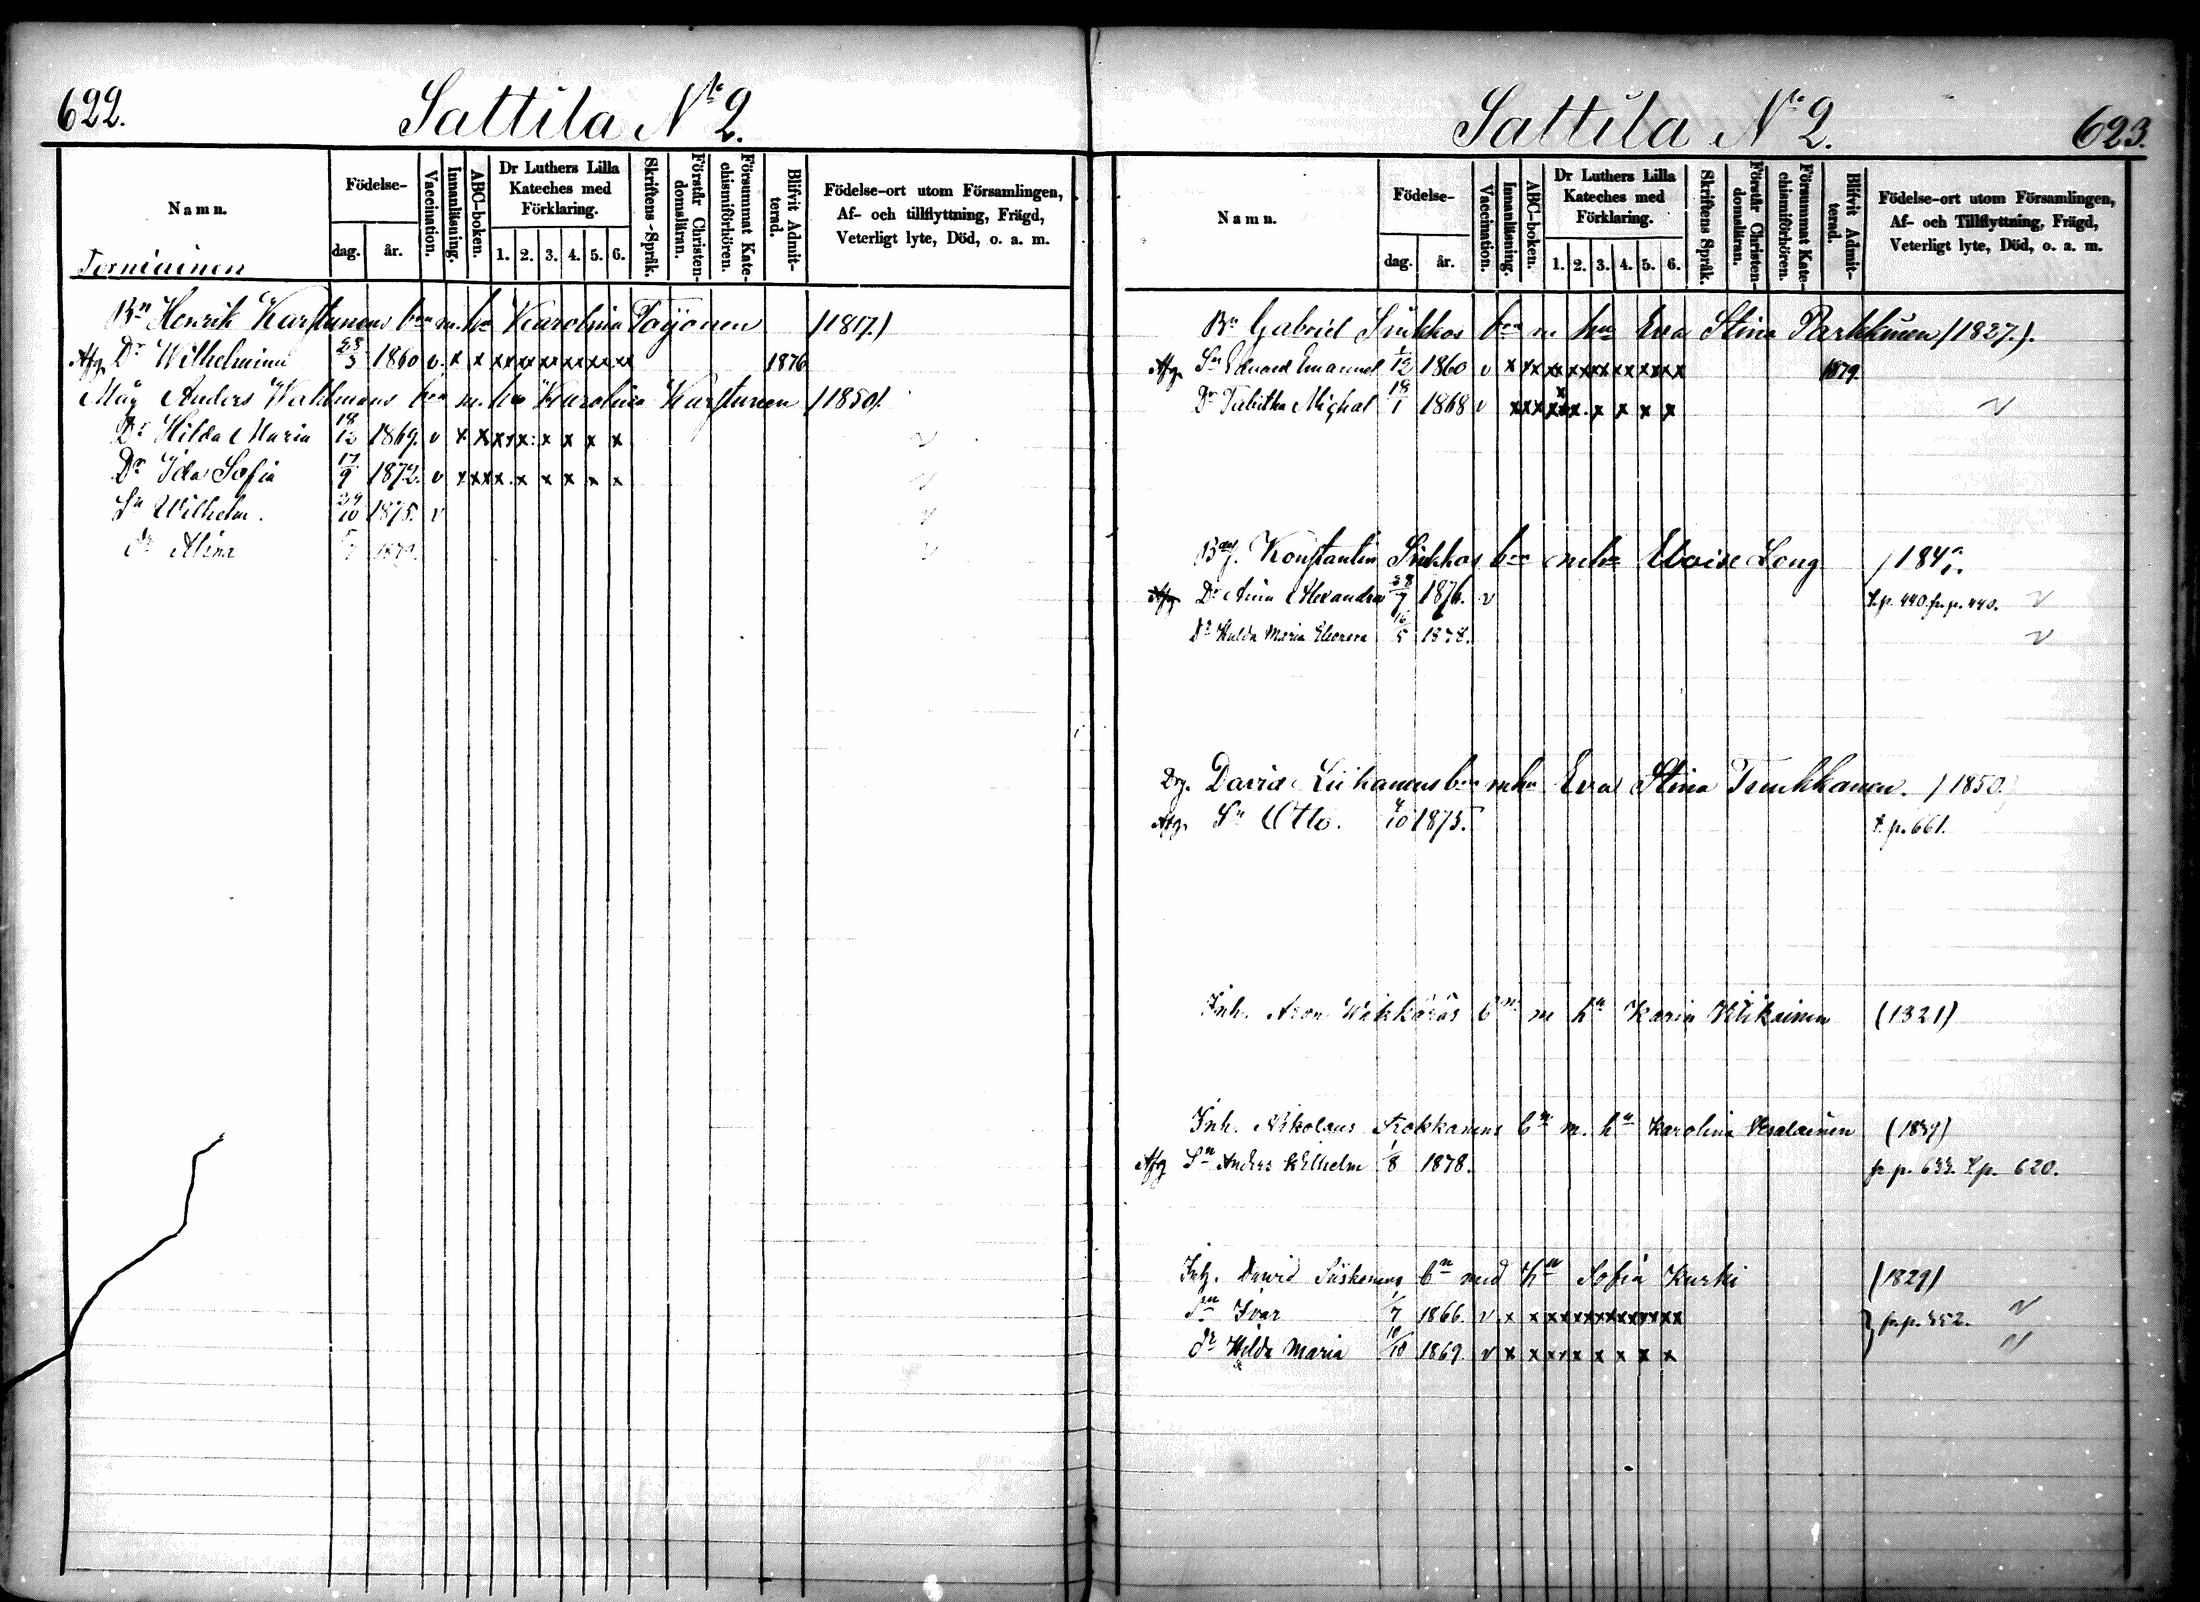 622.
Sattila No 2.
Namn.
Födelse-
dag.
år.
Vaccination.
Innanläsning.
ABC-boken.
Dr Luthers Lilla Kateches med Förklaring.
1. 2. 3. 4. 5. 6.
Skriftens-Språk.
Förstår Christen-domsläran.
Försummat Kate-chismiförhören.
Blifvit Admit-terad.
Födelse-ort utom Församlingen,
Af- och tillflyttning, Frägd,
Veterligt lyte, Död, o. a. m.
Torniainen
Bn Henrik Karstunens bn m. hu Karolina Toijonen (1817.)
Afg. Dr Wilhelmina 28/5 1860 v. x x x x x x x x x x 1876
Måg Anders bn m. hu Karolina Karstunen (1850).
Dr Hilda Maria 18/12 1869. v x x x x x x x x x v
Dr Ida Sofia 17/9 1872. v x x x x x x x x x v
Sn Wilhelm. 29/10 1875. v v
dr Alina v
Sattila No 2.
623.
Namn.
Födelse-
dag.
år.
Vaccination.
Innanläsning.
ABC-boken.
Dr Luthers Lilla Kateches med Förklaring.
1. 2. 3. 4. 5. 6.
Skriftens Språk.
Förstår Christen-domsläran.
Försummat Kate-chismiförhören.
Blifvit Admit-terad.
Födelse-ort utom Församlingen,
Af- och Tillflyttning, Frägd,
Veterligt lyte, Död, o. a. m.
Bn Gabriel Siukkos bn m hu Eva Stina Parkkinen (1827.).
Afg. Sn Eduard Emanuel 1/12 1860 v x x x x x x x x x x x 1879.
Dr Tabitha Michal 18/1 1868 v x x x x x x x x x v
Konstantin Siukkos bn m hu Eloise Long
Afg Dr Alexandra 28/7 1876. v t. p. 440. fr. p. 440. v
Dr Hulda Maria Eleonora 16/5 1878. v
David bn m hu Eva Stina (1850.)
Afg. Sn Otto. 4/10 1875. t. p. 661.
Inh. Aron bn m hu Karin (1821)
Inh. Nikolaus Kokkonens bn m. hu Karolina Vesalainen
Afg Sn Anders Wilhelm 1/8 1878. fr p. 633. t p. 620.
Inh. David bn med hu Sofia Kurki (1829)
Sn Ivar 1/7 1866. v x x x x x x x x x x x x v
dr Hilda Maria 10/10 1869. v x x x x x x x x x } fr p. 352. v